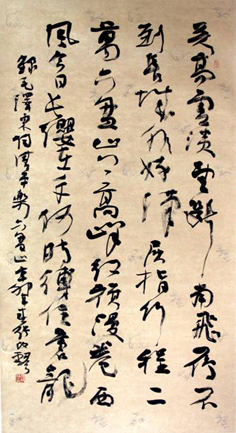 天高雲淡望斷南飛雁不
到長城非好漢屈指行程二
萬六盤山上高峰紅旗漫卷西
風今日長纓在手何時縛住蒼龍
錄毛澤東詞清平樂六盤山